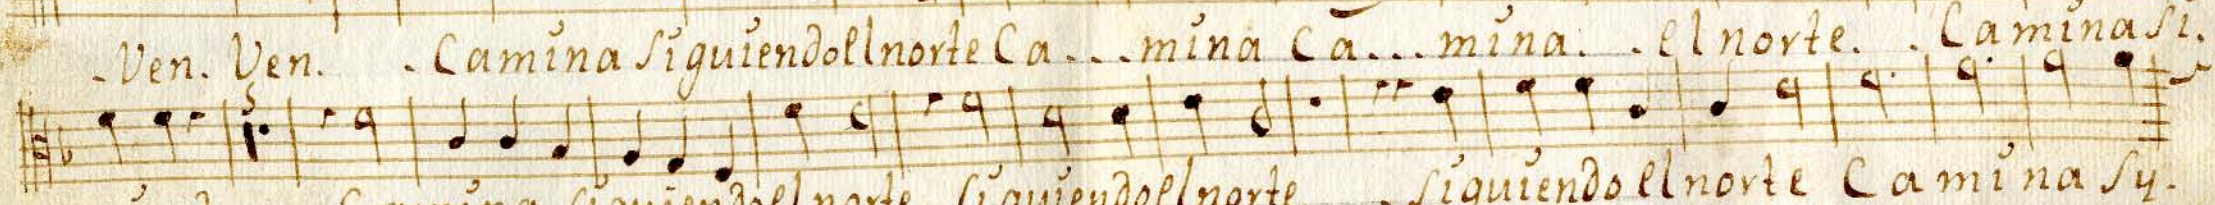 -Ven. Ven. . Camina siguiendo el norte Ca...mina Ca...mina. . el norte. . Camina si.
5
Camina siguiendo el norte siguiendo el norte . siguiendo el norte Camina sy.